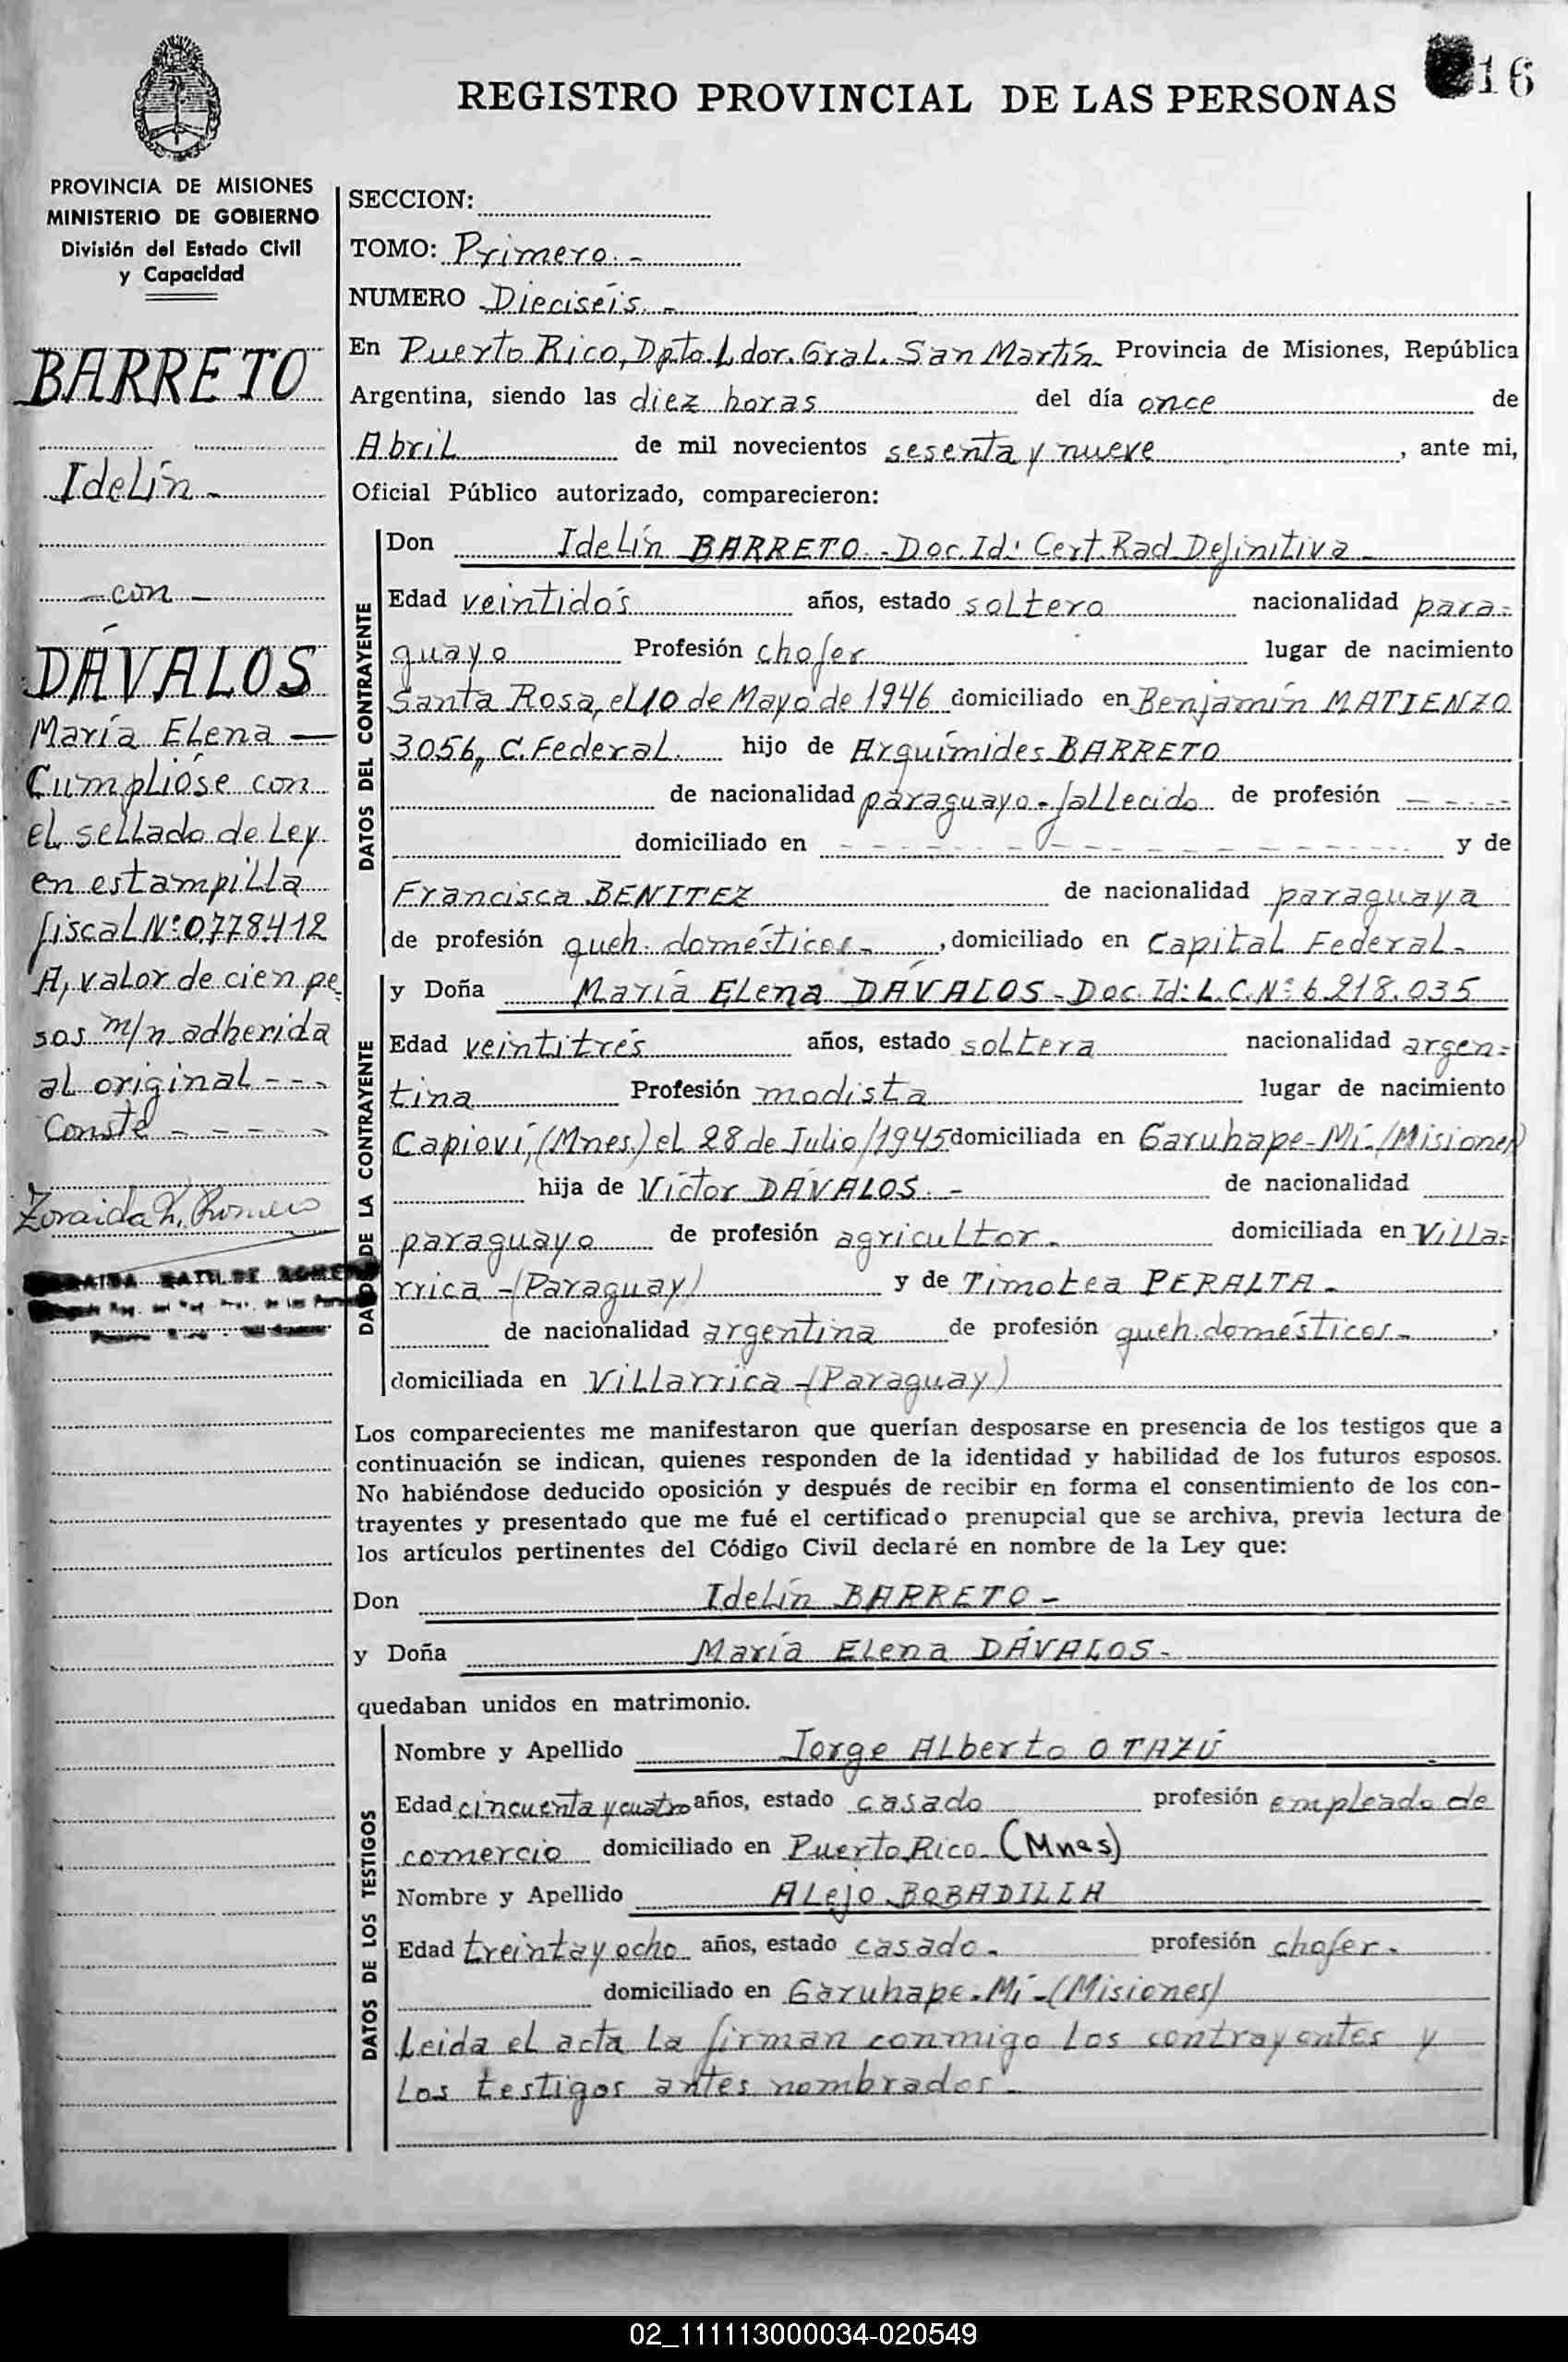 REGISTRO PROVINCIAL DE LAS PERSONAS
16
PROVINCIA DE MISIONES
MINISTERIO DE GOBIERNO
División del Estado Civil
y Capacidad
BARRETO
Idelín -
- con -
DÁVALOS
María Elena —
Cumplióse con
el sellado de Ley
en estampilla
fiscal Nº 0778412
A, valor de cien pe
sos m/n adherida
al original - - -
Conste - - - - -
Zoraida M. Romero
SECCION:
TOMO: Primero. -
NUMERO Dieciséis. -
En Puerto Rico, Dpto. Ldor. Gral. San Martín Provincia de Misiones, República
Argentina, siendo las diez horas del día once de
Abril de mil novecientos sesenta y nueve , ante mi,
Oficial Público autorizado, comparecieron:
DATOS DEL CONTRAYENTE
Don Idelín BARRETO - Doc. Id: Cert. Rad Definitiva
Edad veintidós años, estado soltero nacionalidad para=
guayo Profesión chofer lugar de nacimiento
Santa Rosa, el 10 de Mayo de 1946 domiciliado en Benjamín MATIENZO
3056,, C. Federal. hijo de Arquímides BARRETO
de nacionalidad paraguayo - fallecido de profesión - - - - -
domiciliado en - - - - - - - - - - - y de
Francisca BENITEZ de nacionalidad paraguaya
de profesión queh. domésticos - , domiciliado en Capital Federal -
DATOS DE LA CONTRAYENTE
y Doña María Elena DÁVALOS - Doc. Id: L.C. Nº 6.218.035
Edad veintitrés años, estado soltera nacionalidad argen=
tina Profesión modista lugar de nacimiento
Capioví, (Mnes.) el 28 de Julio/1945 domiciliada en Garuhape-Mí - (Misiones)
hija de Víctor DÁVALOS. - de nacionalidad
paraguayo de profesión agricultor. domiciliada en Villa=
rrica - (Paraguay) y de Timotea PERALTA -
de nacionalidad argentina de profesión queh. domésticos - ,
domiciliada en Villarrica - (Paraguay)
Los comparecientes me manifestaron que querían desposarse en presencia de los testigos que a
continuación se indican, quienes responden de la identidad y habilidad de los futuros esposos.
No habiéndose deducido oposición y después de recibir en forma el consentimiento de los con-
trayentes y presentado que me fué el certificado prenupcial que se archiva, previa lectura de
los artículos pertinentes del Código Civil declaré en nombre de la Ley que:
Don Idelín BARRETO -
y Doña María Elena DÁVALOS -
quedaban unidos en matrimonio.
DATOS DE LOS TESTIGOS
Nombre y Apellido Jorge Alberto OTAZÚ
Edad cincuenta y cuatro años, estado casado profesión empleado de
comercio domiciliado en Puerto Rico - (Mnes)
Nombre y Apellido Alejo BOBADILLA
Edad treinta y ocho años, estado casado - profesión chofer.
domiciliado en Garuhape-Mí - (Misiones)
Leida el acta la firman conmigo los contrayentes y
los testigos antes nombrados -
02_111113000034-020549